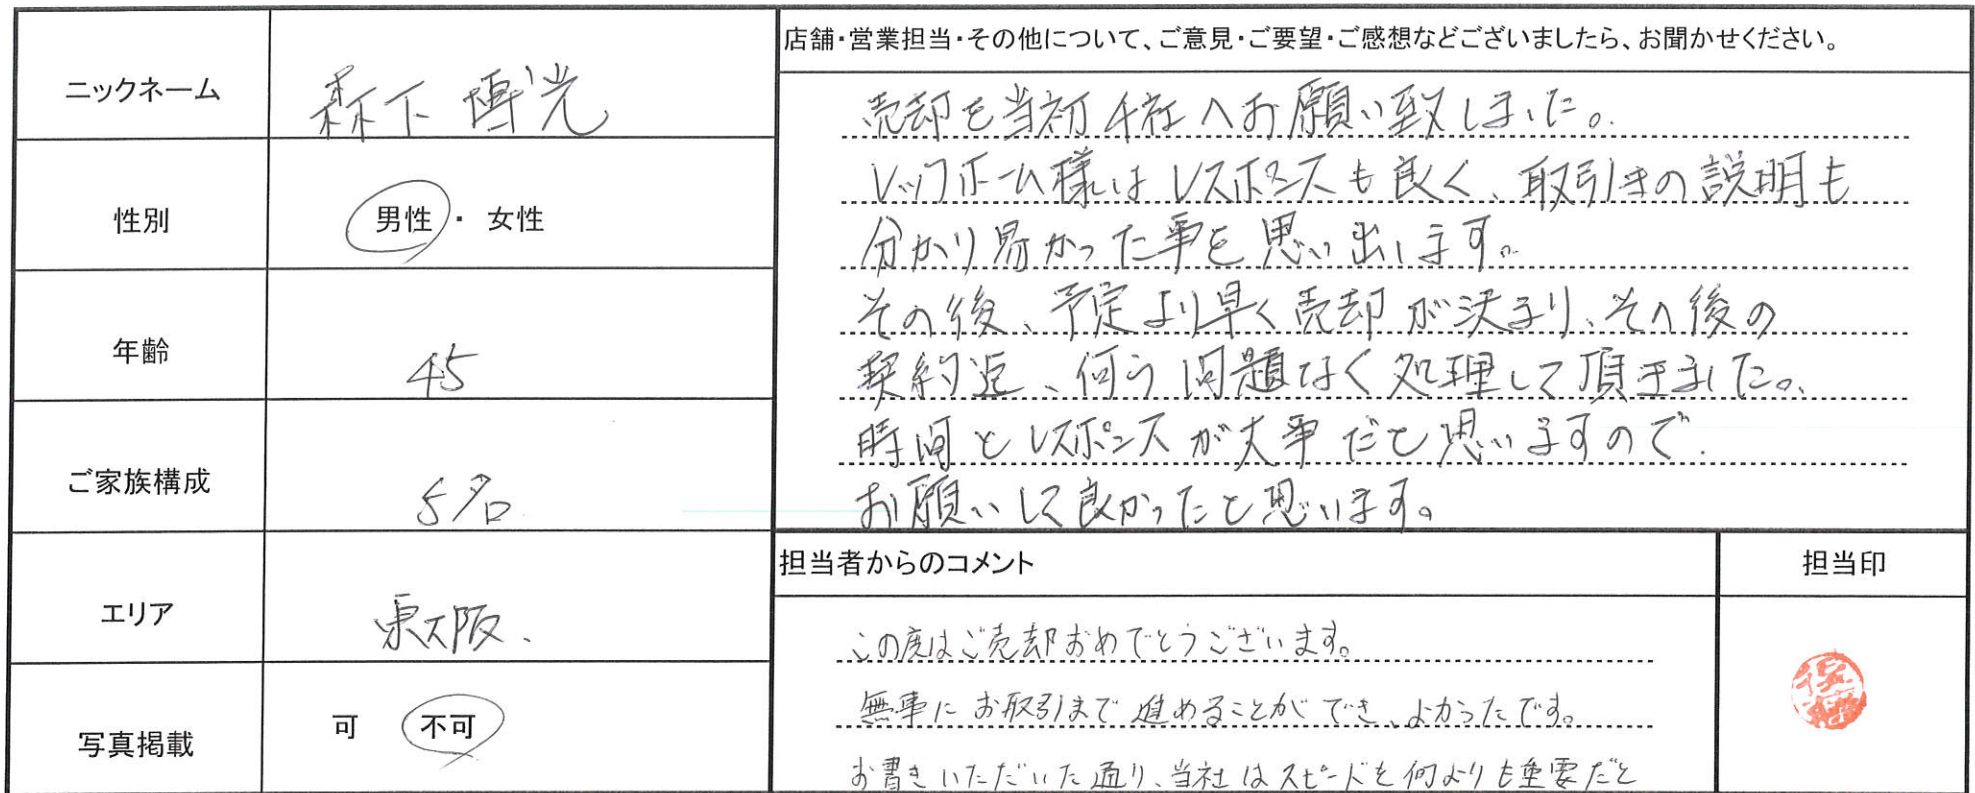 ニックネーム
森下 博光
性別
男性・女性
年齢
45
ご家族構成
5名
エリア
東大阪.
写真掲載
可 不可
店舗・営業担当・その他について、ご意見・ご要望・ご感想などございましたら、お聞かせください。
売却を当初4社へお願い致しました。
レックホーム様はレスポンスも良く、取引きの説明も
分かり易かった事を思い出します。
その後、予定より早く売却が決まり、その後の
契約迄、何う問題なく処理して頂きました。
時間とレスポンスが大事だと思いますので.
お願いして良かったと思います。
担当者からのコメント
この度はご売却おめでとうございます。
無事にお取引まで進めることができ、よかったです。
お書きいただいた通り、当社はスピードを何よりも重要だと
担当印